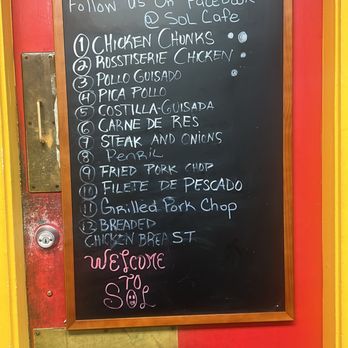 Follow Us On Facebook
@ Sol Cafe
1 Chicken Chunks
2 Rosstiserie Chicken
3 Pollo Guisado
4 Pica Pollo
5 Costilla-Guisada
6 Carne de Res
7 Steak and Onions
8 Penril
9 Fried Pork chop
10 Filete de Pescado
11 Grilled Pork Chop
12 Breaded
Chicken Breast
Welcome
To
Sol